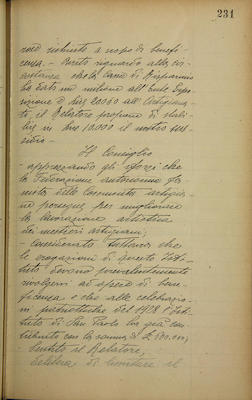 231
a scopo di benefi-
cenza. - Avuto riguardo alla cir-
costanza che la Cassa di Risparmio
ha dato un milione all'Ente Espo-
sizione e lire 20000 all'Artigiana-
to, il Relatore propone di stabi-
lire in lire 10.000 il nostro sus-
sidio -
Il Consiglio
- apprezzando gli sforzi che
la Federazione autonoma Pie-
montese delle Comunità artigia-
ne persegue per migliorare
la lavorazione artistica
dei mestieri artigiani;
- considerato tuttavia che
le erogazioni di questo Isti-
tuto devono prevalentemente
rivolgersi ad opere di bene-
ficenza e che alle celebrazio-
ni patriottiche del 1928 l'Isti-
tuto di San Paolo ha già con-
tribuito con la somma di £ 500.000,
- Sentito il Relatore,
delibera di limitare il